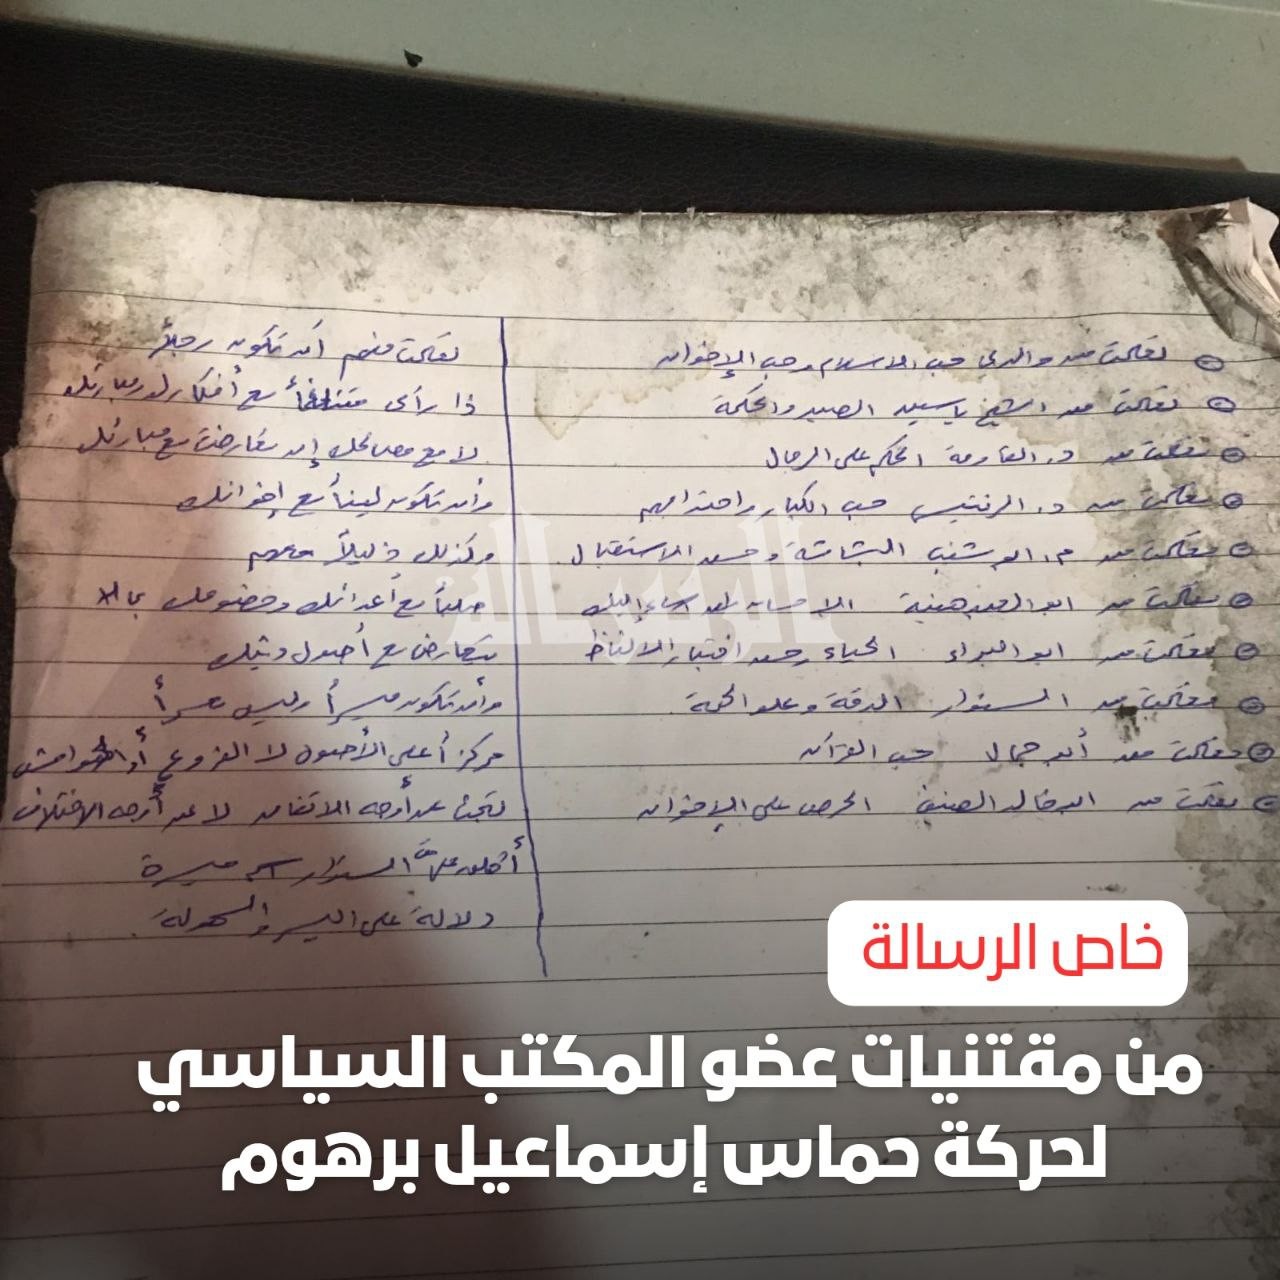 تعلمت من والدي حب الإسلام وحب الإخوان
تعلمت من الشيخ ياسين الصبر والحكمة
تعلمت من د. المقادمة الحكم على الرجال
تعلمت من د. الرنتيسي حب الكبار واحترامهم
تعلمت من م. أبو شنب البشاشة وحسن الاستقبال
تعلمت من ابو العبد هنية الإحسان لمن أساء إليك
تعلمت من ابو البراء الحياء وحسن اختيار الألفاظ
تعلمت من السنوار الدقة وعلو الهمة
تعلمت من أبو جمال حب القرآن
تعلمت من ابو خالد الضيف الحرص على الإخوان
تعلمت منهم أن تكون رجلاً
ذا رأى مع أفكارك ومبادئك
لا مع مصالحك إن تعارضت مع مبادئك
وأن تكون ليناً مع إخوانك
وكذلك ذليلاً معهم
صلباً مع أعدائك وخصومك
يتعارض مع أصول دينك
وأن تكون ميسراً وليس معسراً
مركزاً على الأصول لا الفروع أو الهوامش
تبحث عن أوجه الاتفاق لا عن أوجه الاختلاف
أطلق على السنوار اسم ميسرة
دلالة على اليسر والسهولة.
الرسالة
خاص الرسالة
من مقتنيات عضو المكتب السياسي
لحركة حماس إسماعيل برهوم